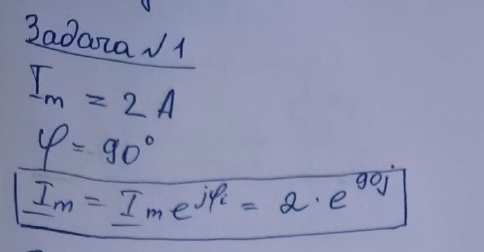 Задача №1
I_m = 2 A
φ = 90°
I̲_m = I̲_m e^{jφ_i} = 2 · e^{90j}